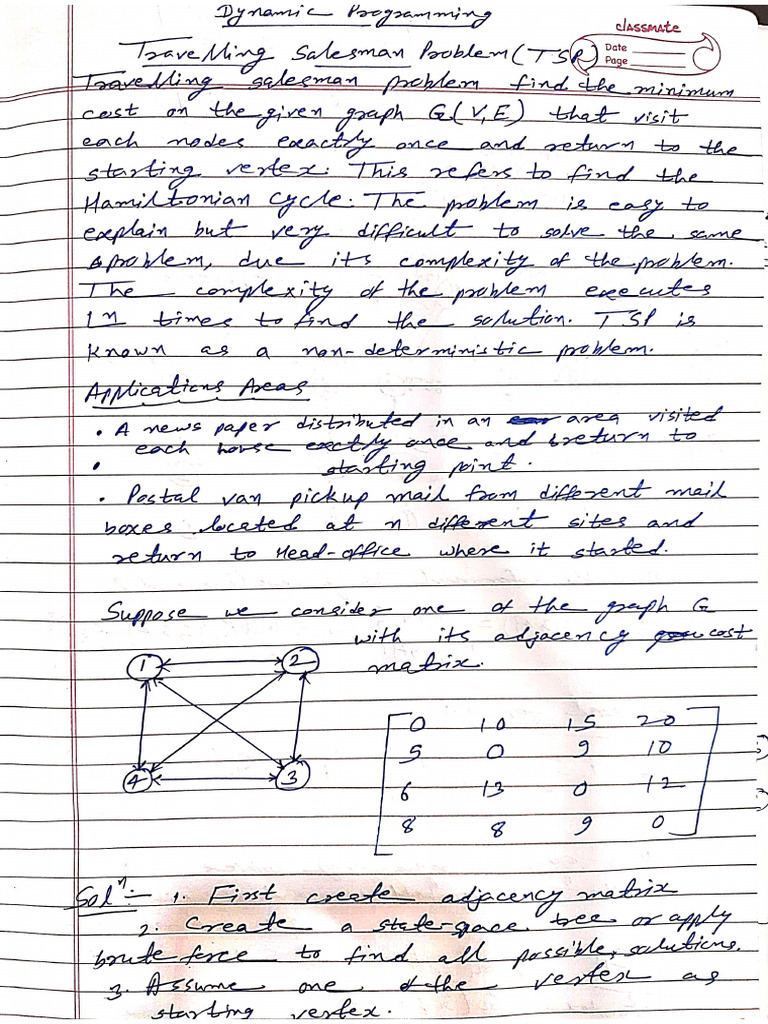 Dynamic Programming
classmate
Date
Page
Travelling Salesman Problem (TSP)
Travelling salesman problem find the minimum
cost on the given graph G(V,E) that visit
each nodes exactly once and return to the
starting vertex. This refers to find the
Hamiltonian Cycle. The problem is easy to
explain but very difficult to solve the same
problem, due its complexity of the problem.
The complexity of the problem executes
times to find the solution. TSP is
known as a non-deterministic problem.
Applications Areas
• A news paper distributed in an area visited
each house exactly once and return to
• starting point.
• Postal van pickup mail from different mail
boxes located at n different sites and
return to Head-office where it started.
Suppose we consider one of the graph G
with its adjacency cost
matrix.
1 2
4 3
0 10 15 20
5 0 9 10
6 13 0 12
8 8 9 0
Solⁿ:- 1. First create adjacency matrix
2. Create a state-space tree or apply
brute force to find all possible solutions.
3. Assume one of the vertex as
starting vertex.